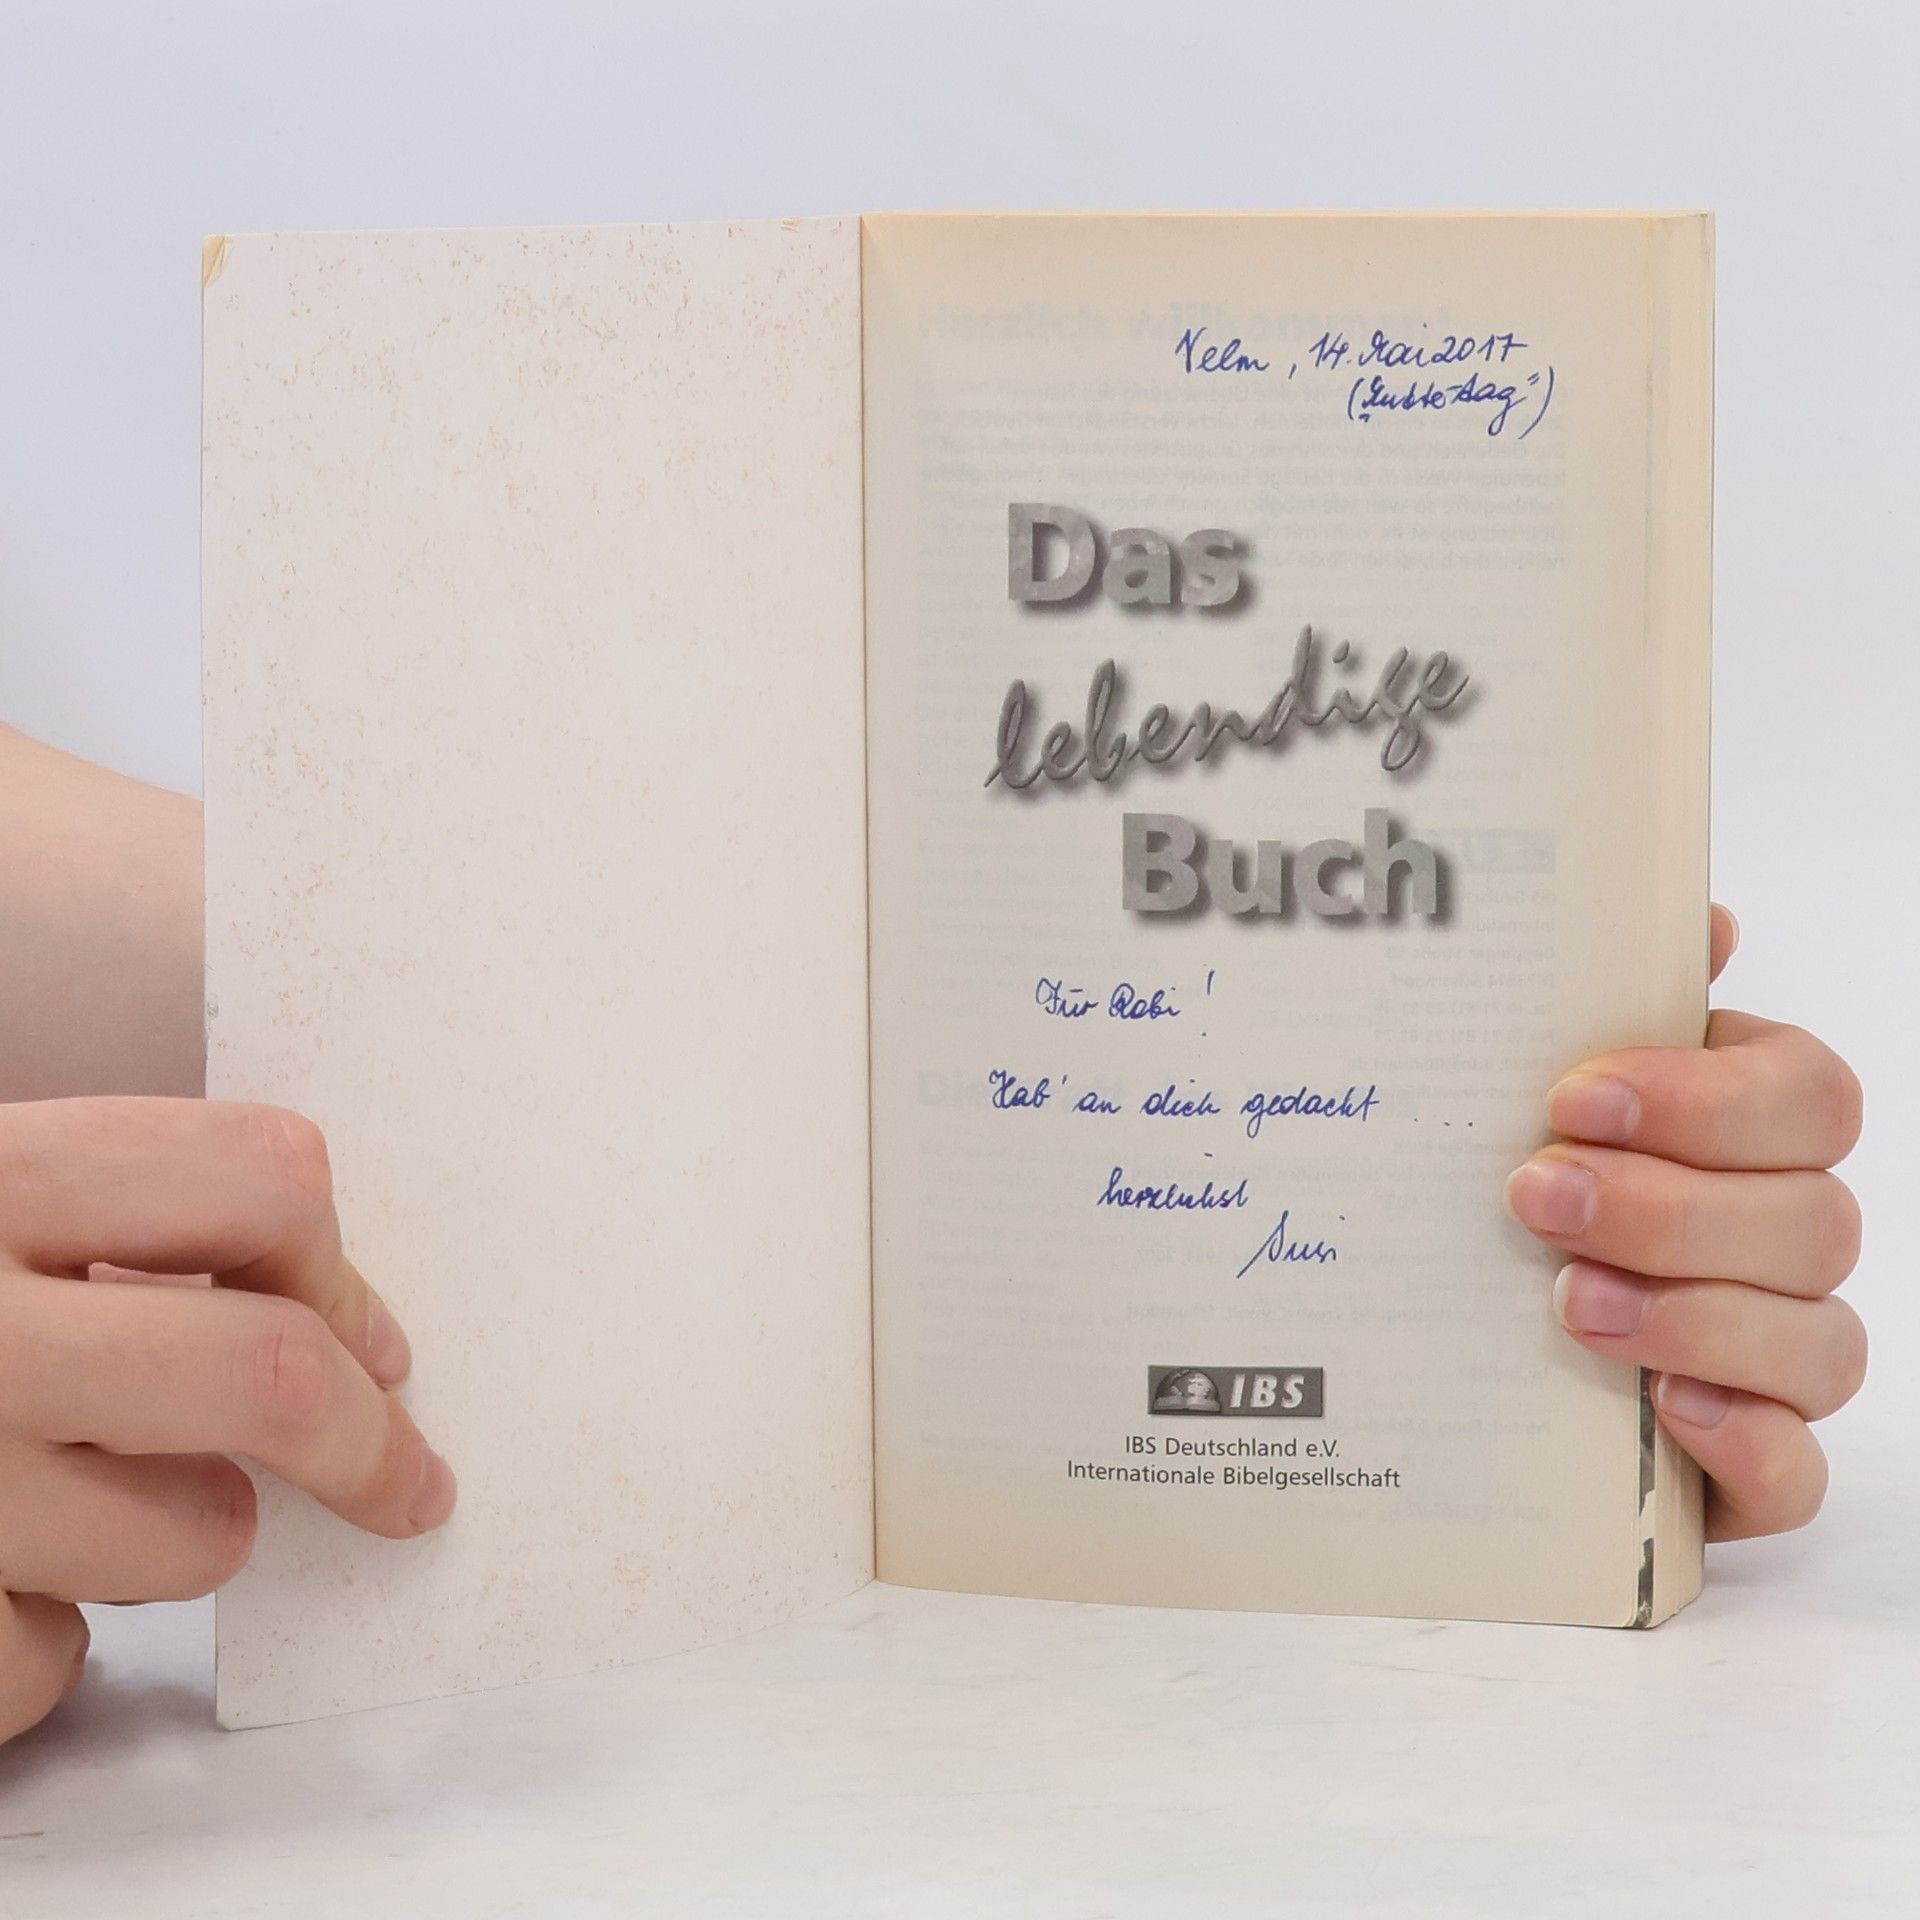 Velm, 14. Mai 2017
("Muttertag")
Das
lebendige
Buch
Für Robi!
Hab' an dich gedacht ...
herzlichst
Susi
IBS
IBS Deutschland e.V.
Internationale Bibelgesellschaft